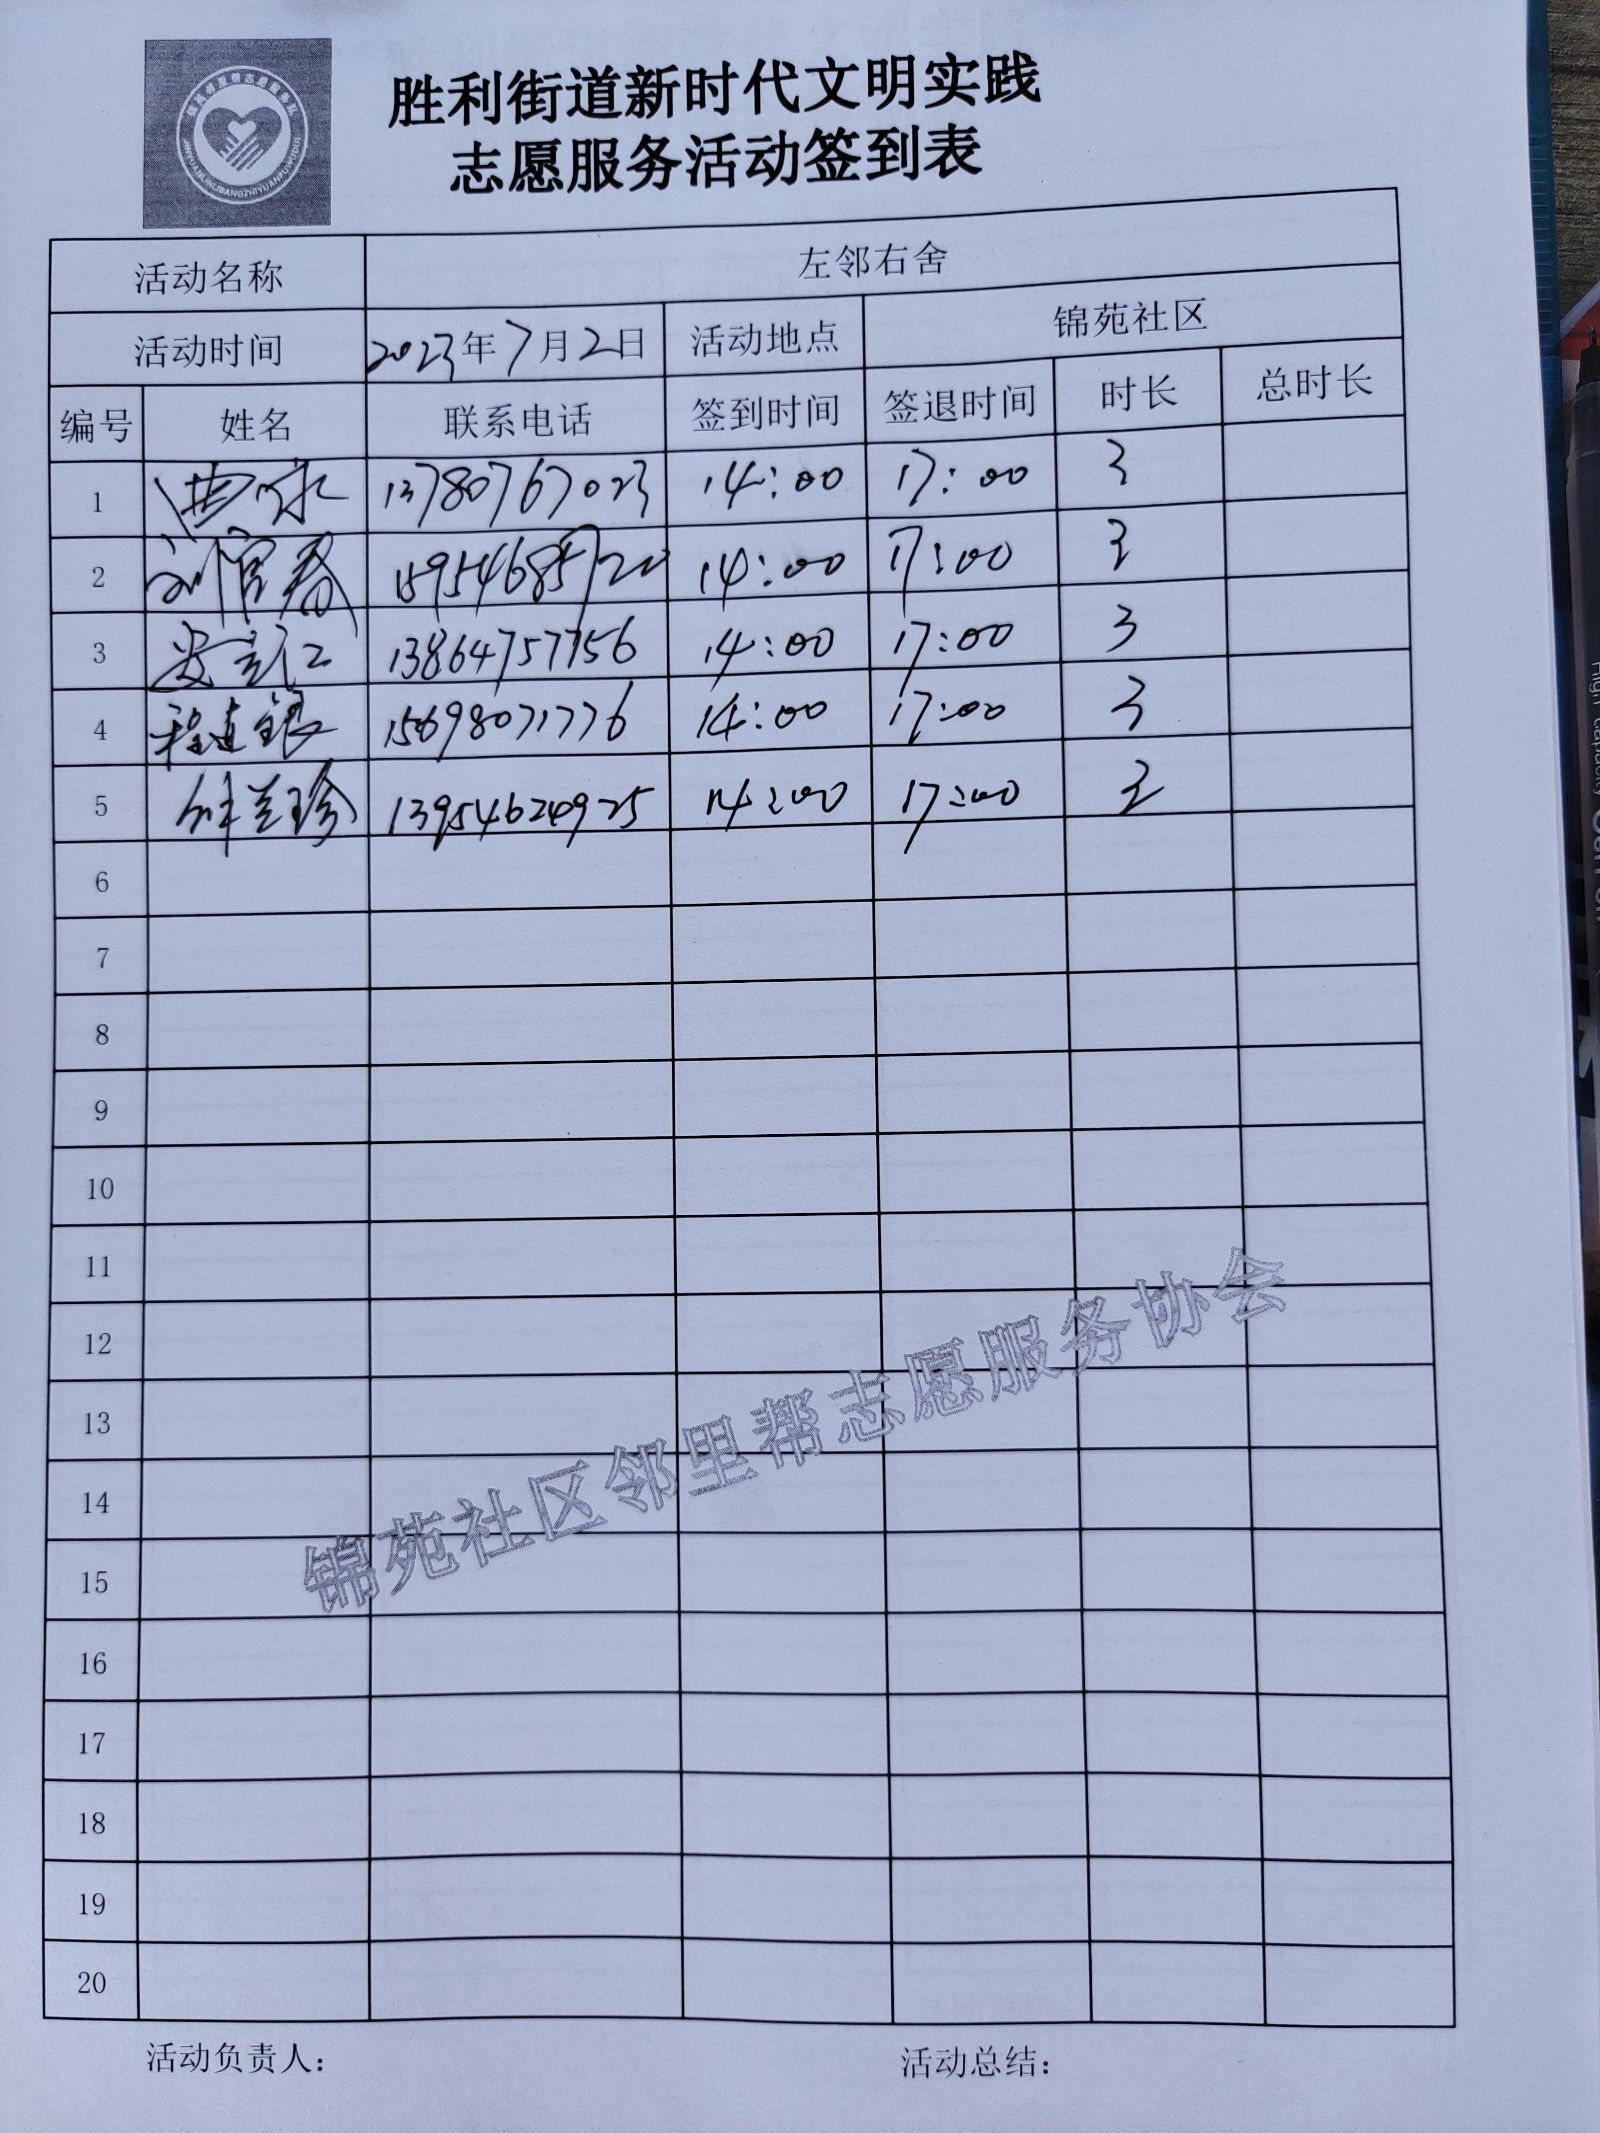 胜利街道新时代文明实践
志愿服务活动签到表
活动名称 左邻右舍
活动时间 2023年7月2日 活动地点 锦苑社区
编号 姓名 联系电话 签到时间 签退时间 时长 总时长
1 13780767023 14:00 17:00 3
2 刘官春 15954685720 14:00 17:00 3
3 13864757756 14:00 17:00 3
4 程连银 15698071776 14:00 17:00 3
5 兰珍 13954624925 14:00 17:00 3
6
7
8
9
10
11
12
13
14
15
16
17
18
19
20
锦苑社区邻里帮志愿服务协会
活动负责人： 活动总结：